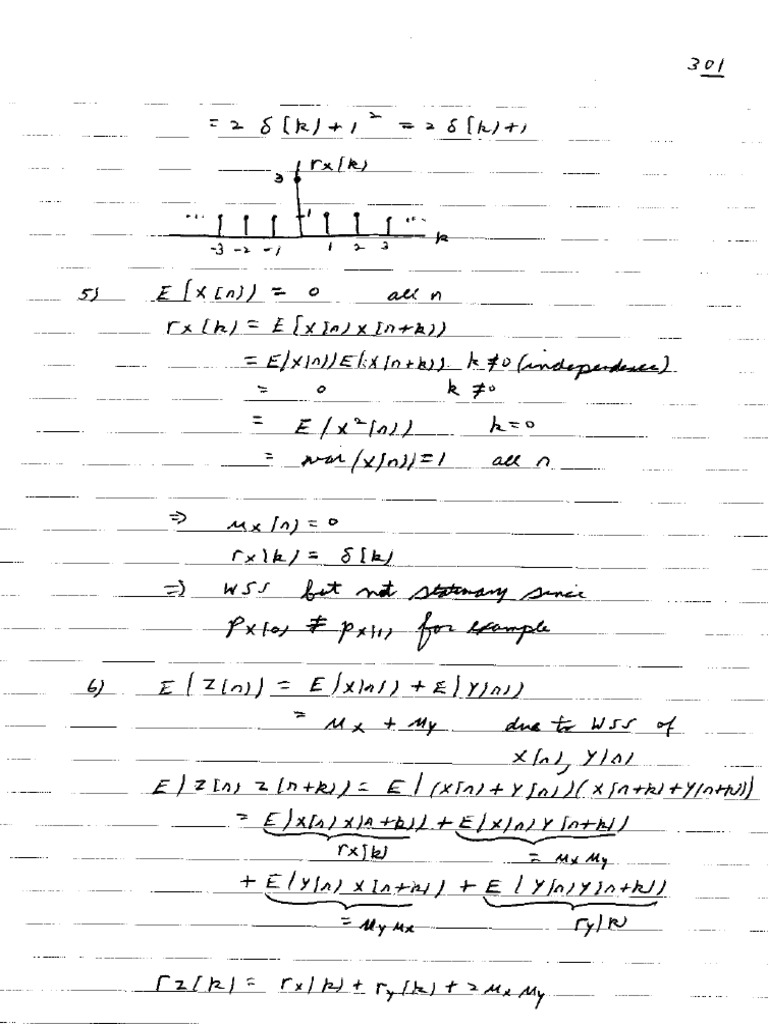 301
= 2 δ[k] + 1² = 2 δ[k] + 1
rx[k]
3
... 1 ...
-3 -2 -1 1 2 3 k
5) E[X[n]] = 0 all n
rx[k] = E[X[n]X[n+k]]
= E[X[n]]E[X[n+k]] k≠0 (independence)
= 0 k≠0
= E[X²[n]] k=0
= var(X[n]) = 1 all n
⇒ μx[n] = 0
rx[k] = δ[k]
⇒ WSS but not stationary since
px[0] ≠ px[1] for example
6) E[Z[n]] = E[X[n]] + E[Y[n]]
= μx + μy due to WSS of
X[n], Y[n]
E[Z[n] Z[n+k]] = E[(X[n] + Y[n])(X[n+k] + Y[n+k])]
= E[X[n]X[n+k]] + E[X[n]Y[n+k]]
rx[k] = μxμy
+ E[Y[n]X[n+k]] + E[Y[n]Y[n+k]]
= μyμx ry[k]
rz[k] = rx[k] + ry[k] + 2μxμy